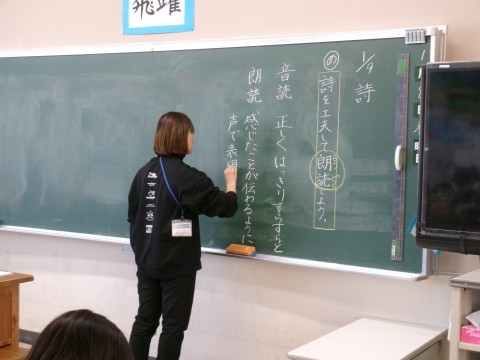 飛躍
1/9 詩
め 詩を工夫して朗読しよう。
音読 正しくはっきりすらすらと
朗読 感じたことが伝わるように
声で表現